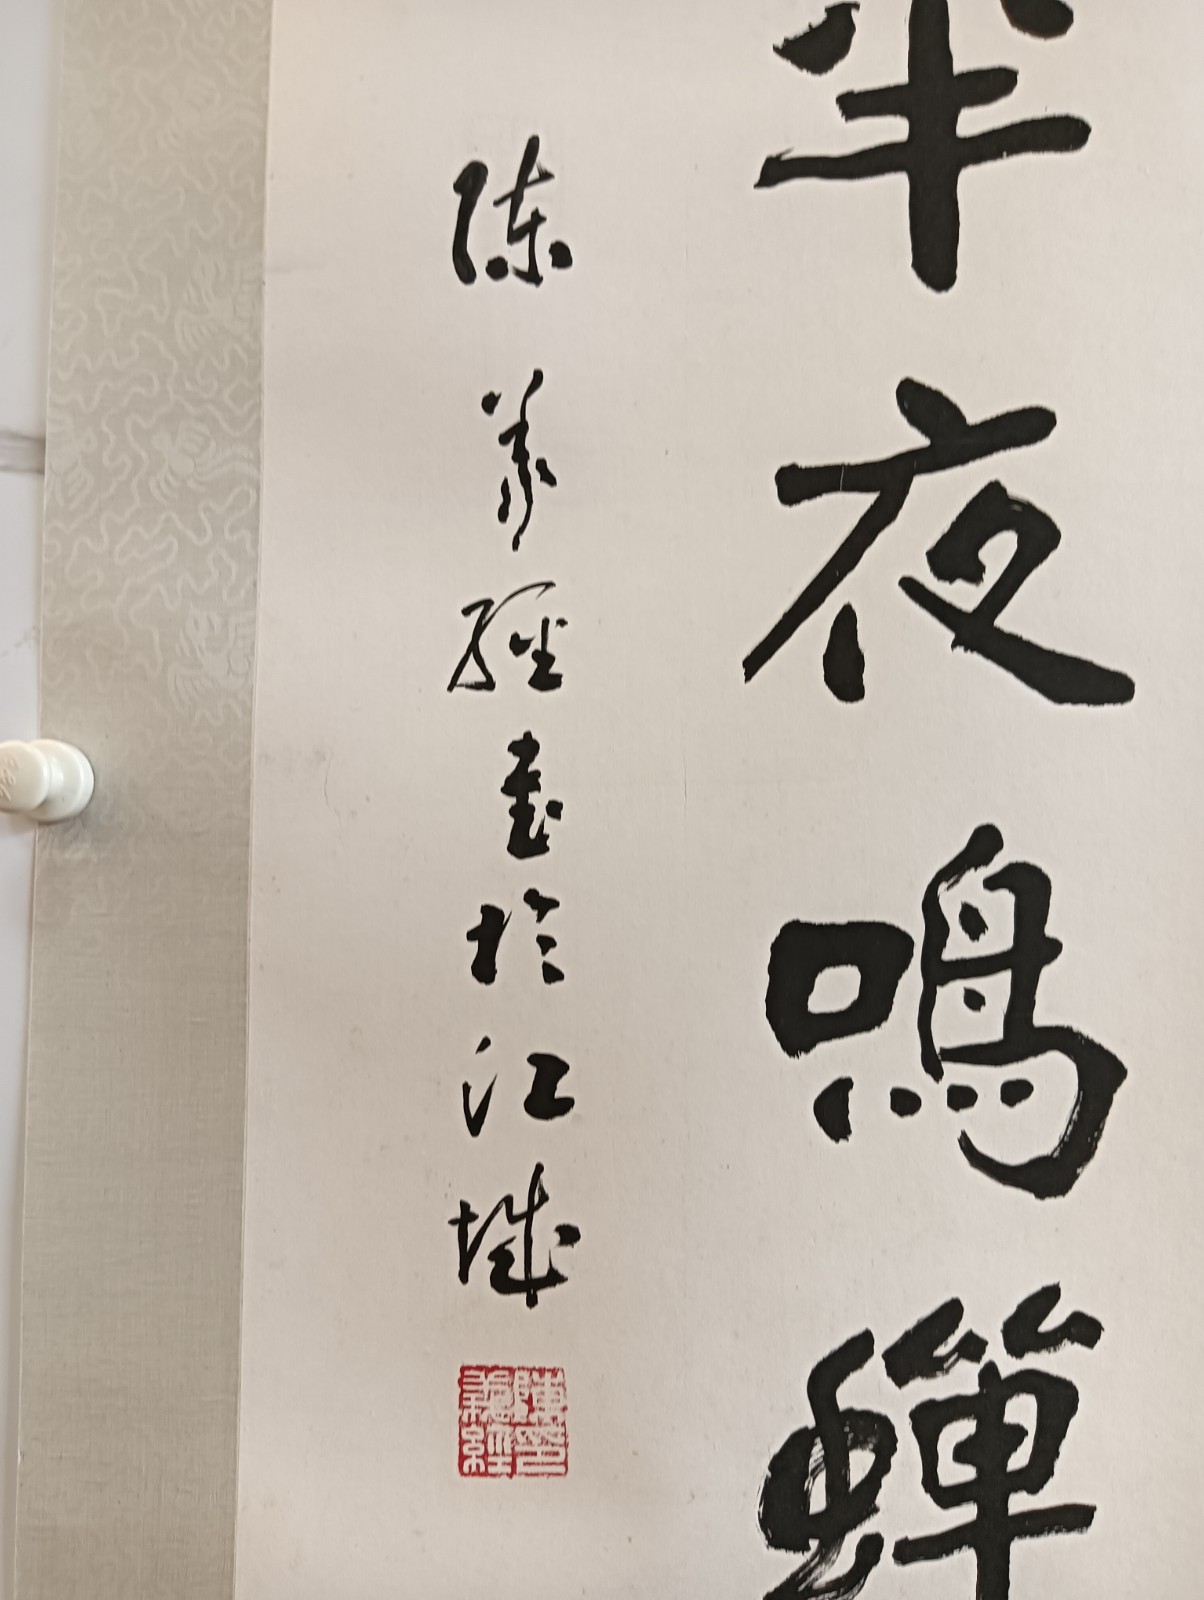 半夜鳴蟬
陳義經書於江城
陳印義經